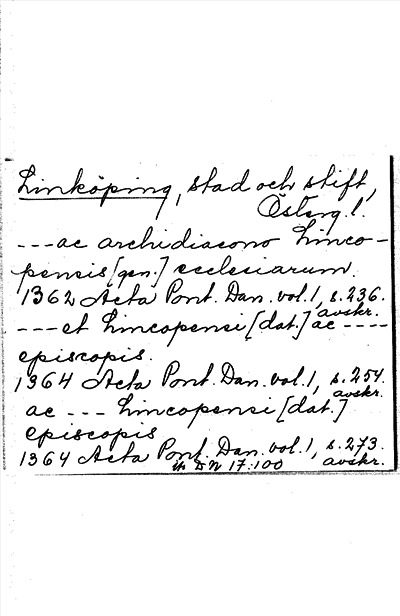 Linköping, stad och stift,
Österg. l.
---ac archidiacono Linco-
pensis [gen.] ecclesiarum.
1362 Acta Pont. Dan. vol. 1, s. 236.
avskr.
---et Lincopensi [dat.] ac ----
episcopis.
1364 Acta Pont. Dan. vol. 1, s. 254.
avskr.
ac --- Lincopensi [dat.]
episcopis
1364 Acta Pont. Dan. vol. 1, s. 273.
DN 17:100 avskr.